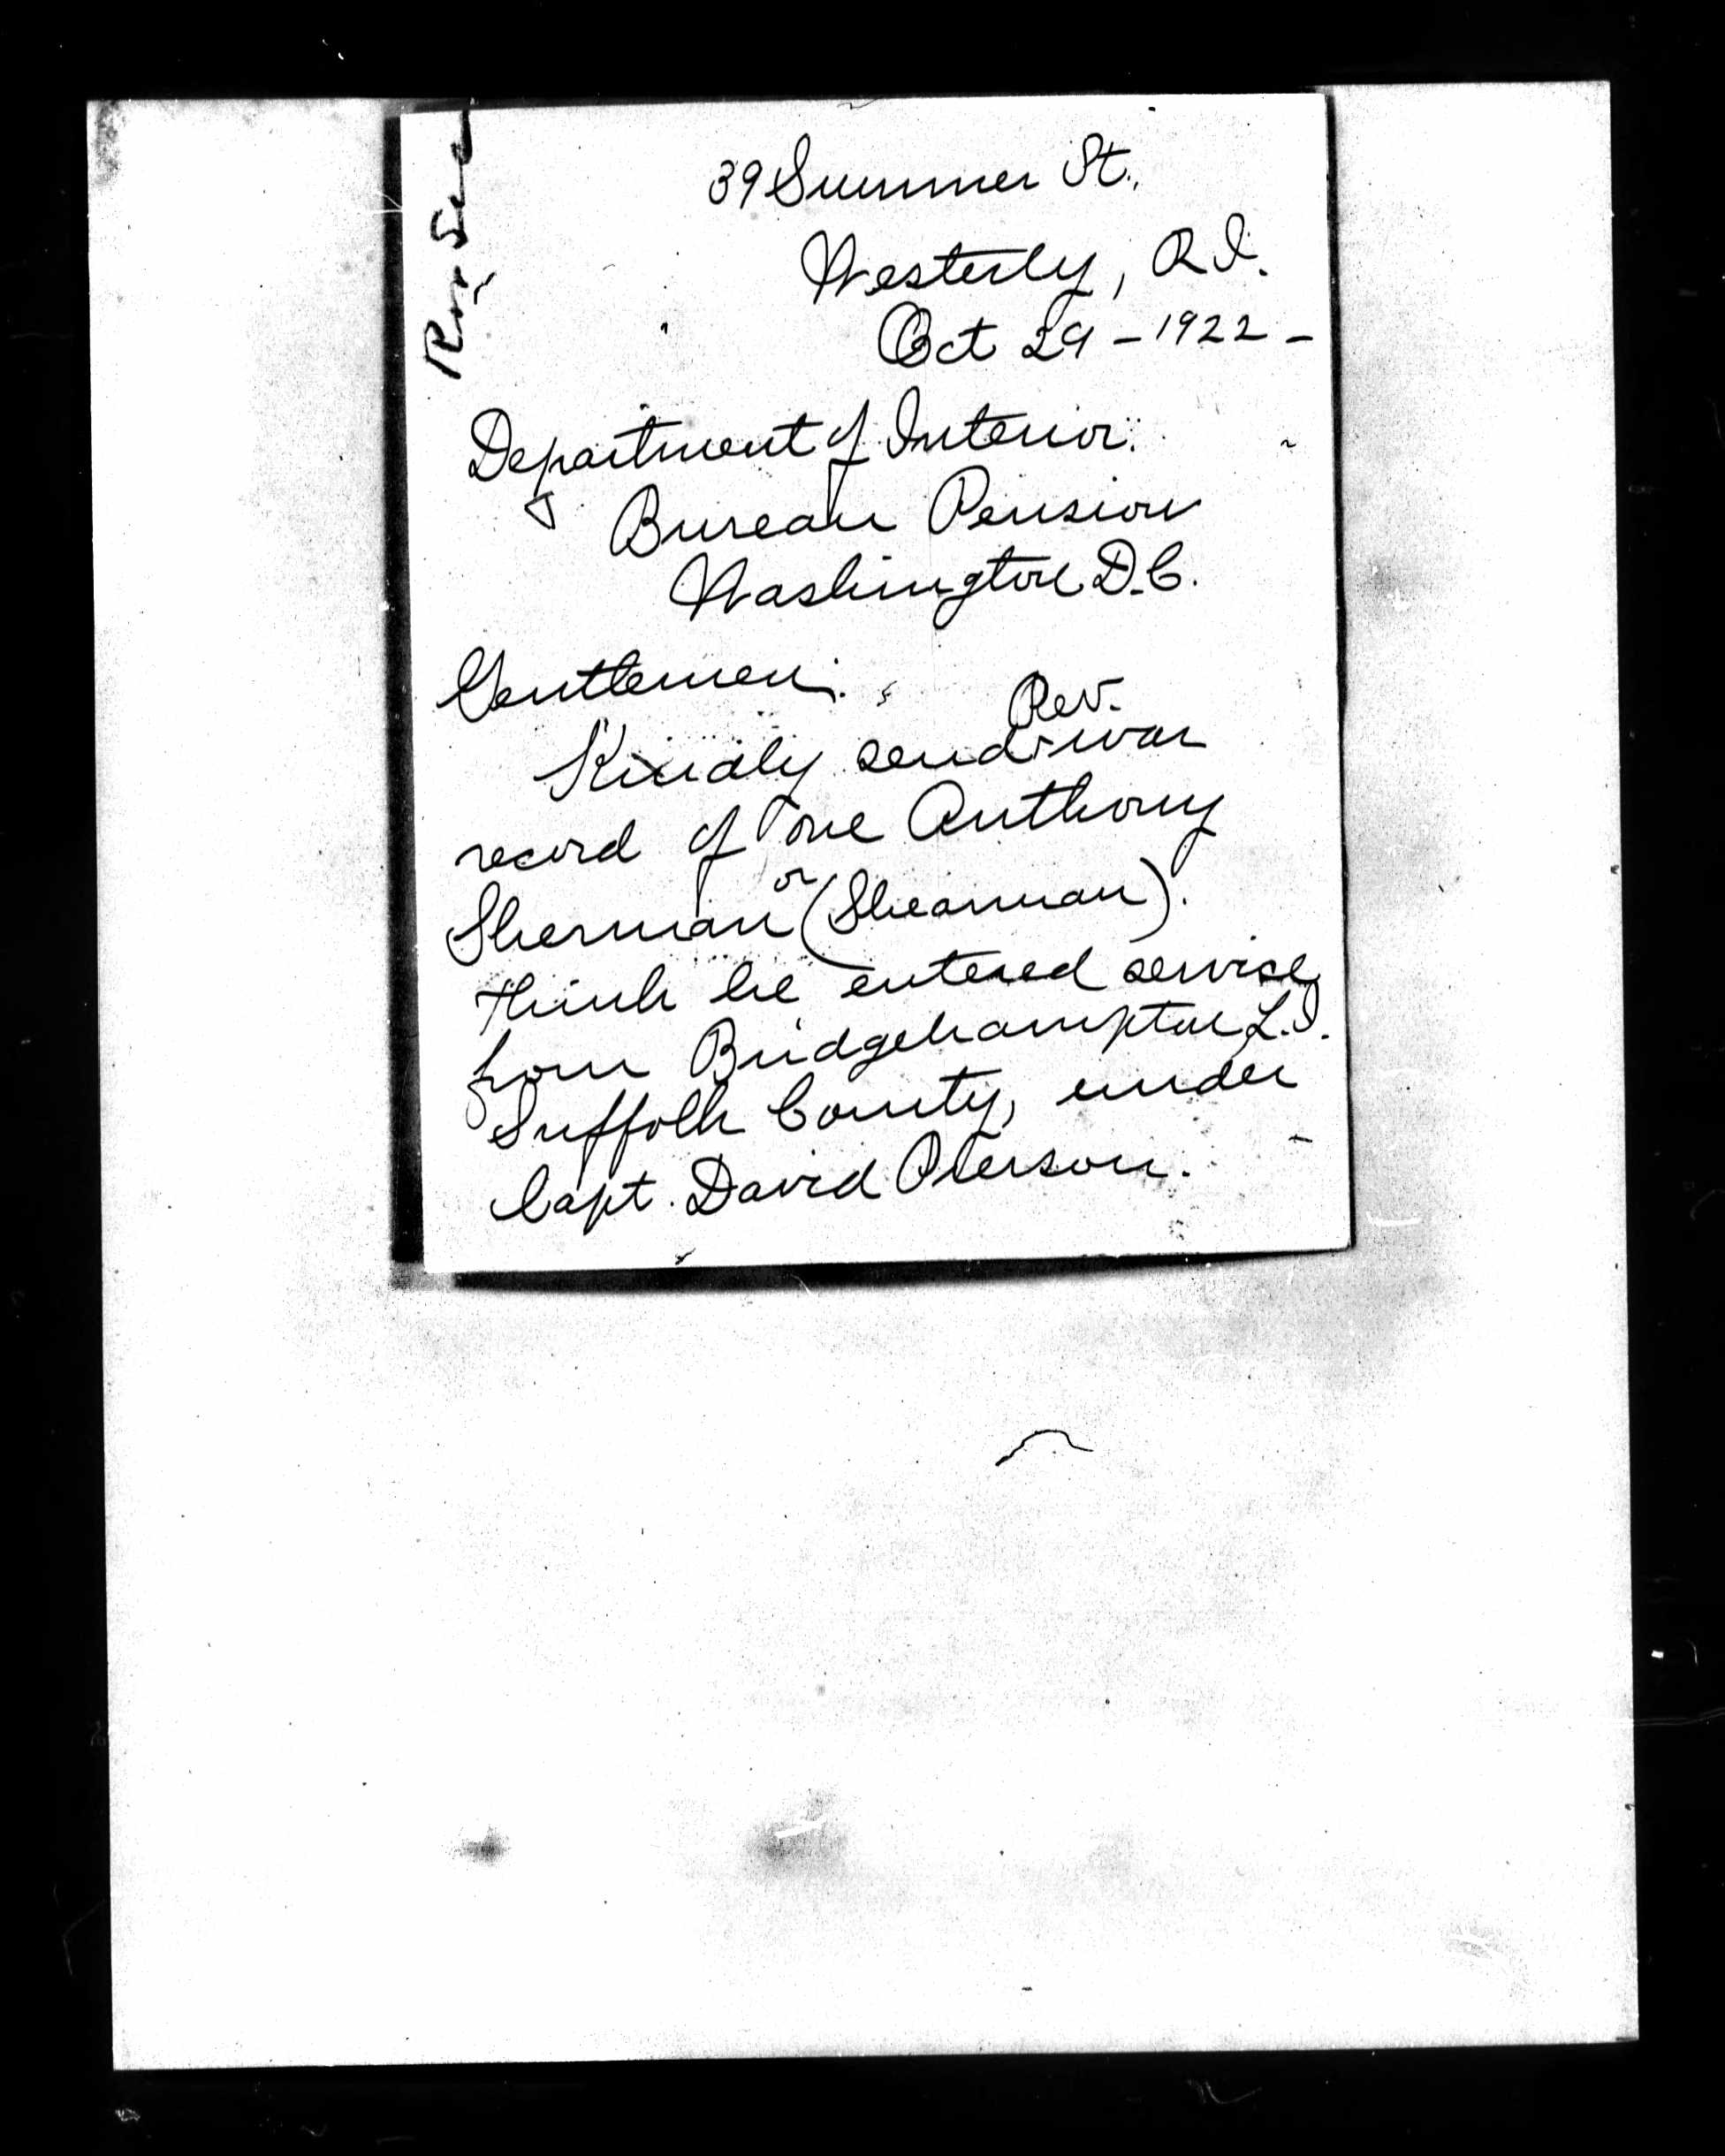 39 Summer St.,
Westerly, R.I.
Oct 29 - 1922 -
Department of Interior.
Bureau Pension
Washington D.C.
Gentlemen:
Rev.
Kindly send war
record of one Anthony
Sherman or (Shearman).
think he entered service
from Bridgehampton L.I.
Suffolk County, under
Capt. David Pierson.